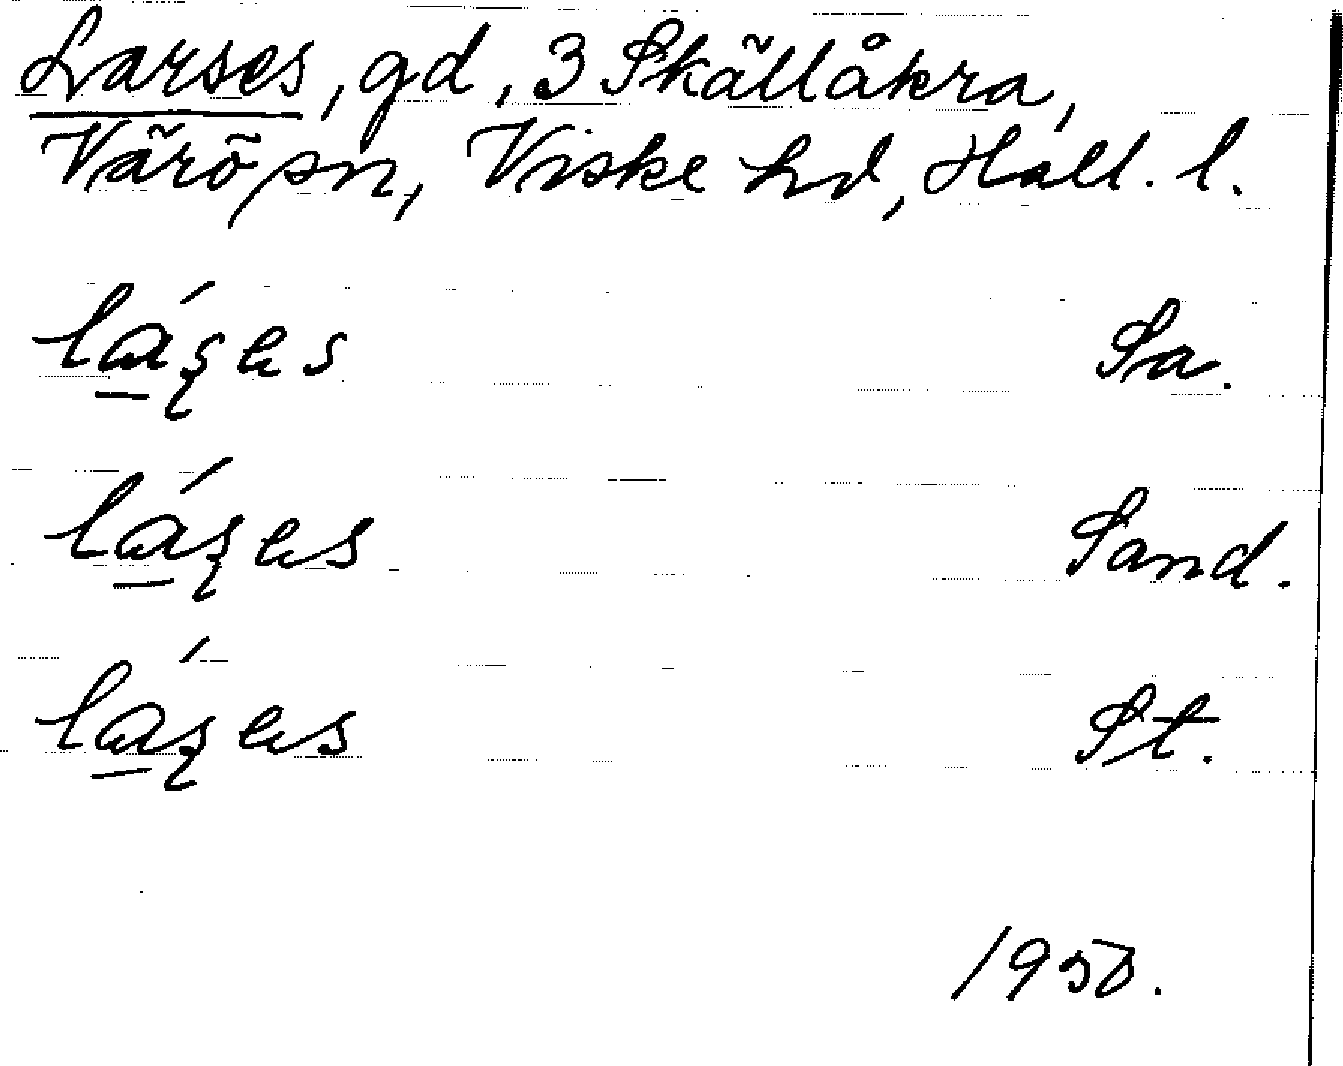 Larses, gd, 3 Skällåkra,
Värö sn, Viske hd, Hall. l.
lázes Sa.
lázes Sand.
lázes St.
1950.